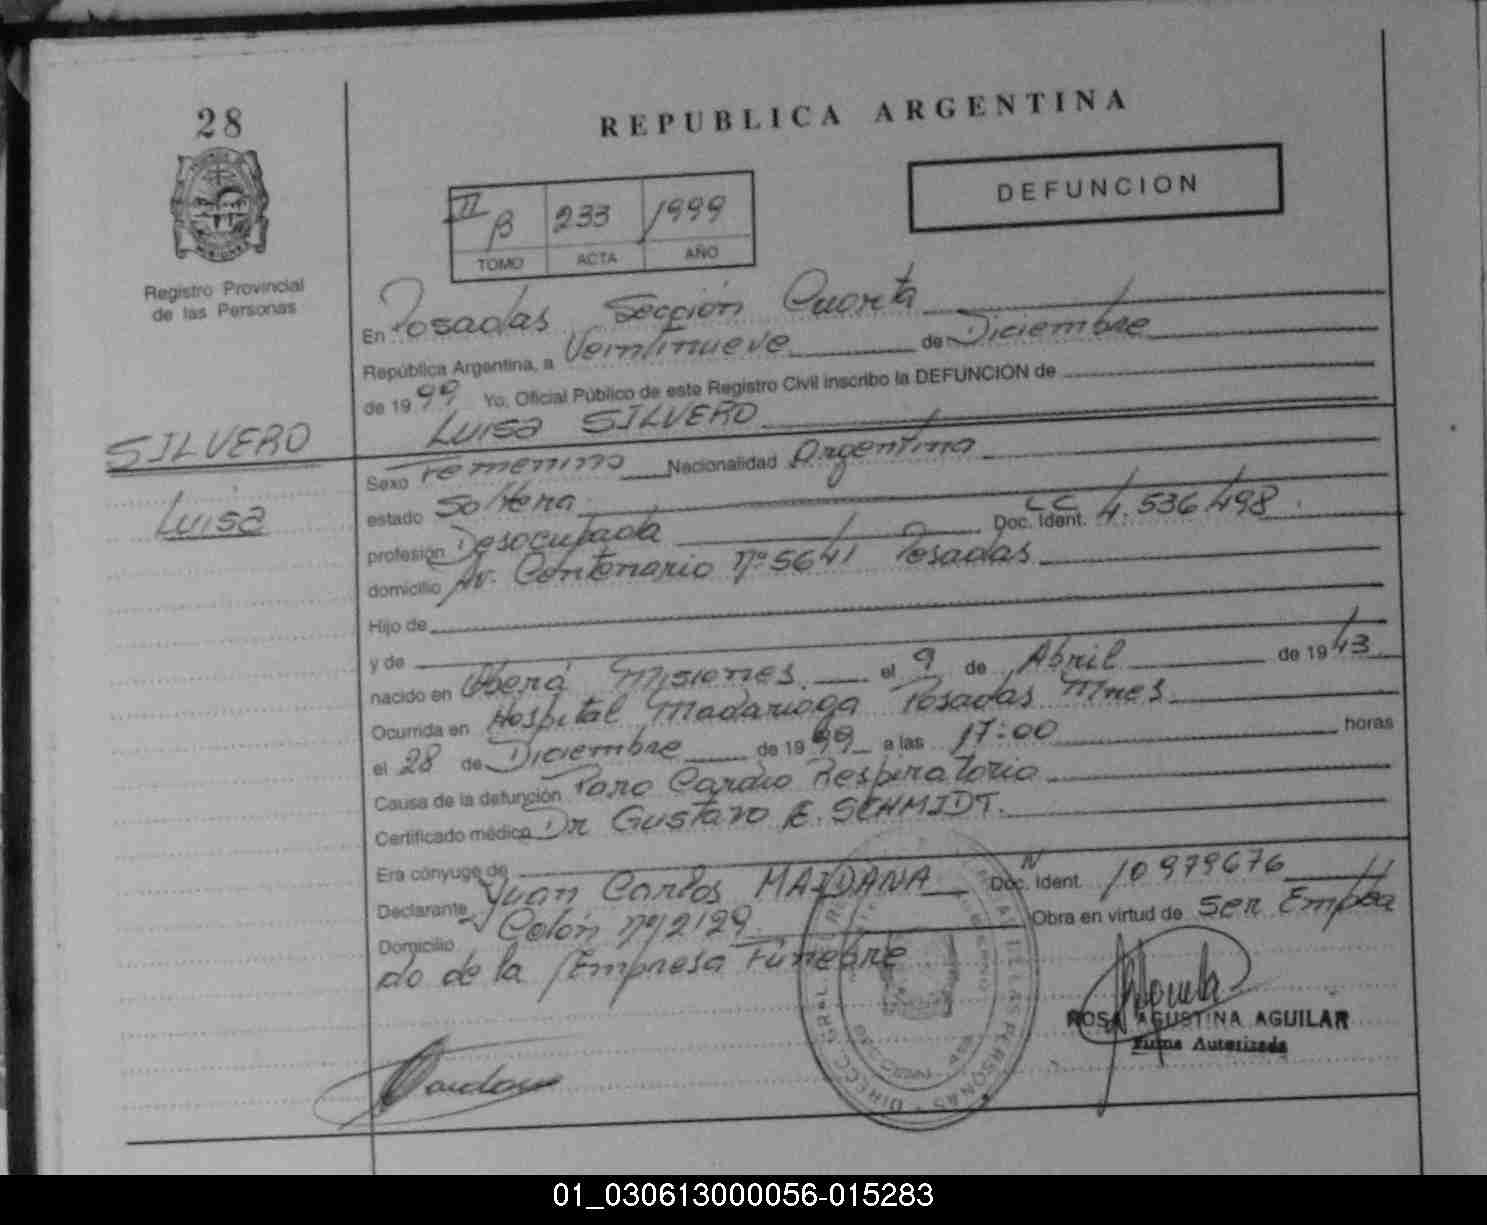 28
REPUBLICA ARGENTINA
DEFUNCION
II B 233 1999
TOMO ACTA AÑO
Registro Provincial
de las Personas
En Posadas Sección Cuarta
República Argentina, a Veintinueve de Diciembre
de 1999 Yo, Oficial Público de este Registro Civil inscribo la DEFUNCION de
SILVERO
Luisa SILVERO
Luisa
Sexo Femenino Nacionalidad Argentina
estado Soltera
profesión Desocupada Doc. Ident. LC 4.536.498
domicilio Av. Centenario Nº 5641 Posadas
Hijo de
y de
nacido en Oberá Misiones el 9 de Abril de 1943
Ocurrida en Hospital Madariaga Posadas Mnes
el 28 de Diciembre de 1999 a las 17:00 horas
Causa de la defunción Paro Cardio Respiratorio
Certificado médico Dr Gustavo E. SCHMIDT.
Era cónyuge de
Declarante Juan Carlos MAIDANA Doc. Ident. 10979676
Domicilio Colón Nº 2129 Obra en virtud de ser Emplea
do de la Empresa Fúnebre
ROSA AGUSTINA AGUILAR
Firma Autorizada
01_030613000056-015283